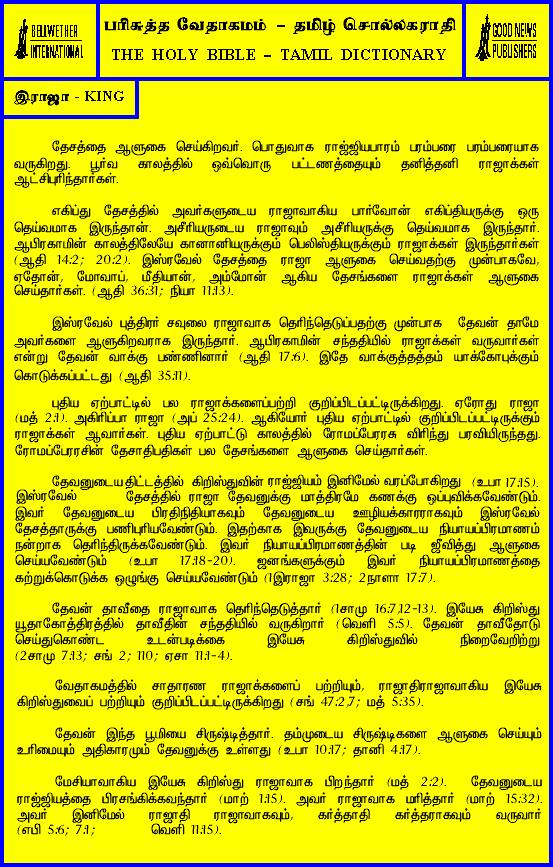 BELLWETHER
INTERNATIONAL
பரிசுத்த வேதாகமம் – தமிழ் சொல்லகராதி
THE HOLY BIBLE – TAMIL DICTIONARY
GOOD NEWS
PUBLISHERS
இராஜா - KING
தேசத்தை ஆளுகை செய்கிறவர். பொதுவாக ராஜ்ஜியபாரம் பரம்பரை பரம்பரையாக
வருகிறது. பூர்வ காலத்தில் ஒவ்வொரு பட்டணத்தையும் தனித்தனி ராஜாக்கள்
ஆட்சிபுரிந்தார்கள்.
எகிப்து தேசத்தில் அவர்களுடைய ராஜாவாகிய பார்வோன் எகிப்தியருக்கு ஒரு
தெய்வமாக இருந்தான். அசீரியருடைய ராஜாவும் அசீரியருக்கு தெய்வமாக இருந்தார்.
ஆபிரகாமின் காலத்திலேயே கானானியருக்கும் பெலிஸ்தியருக்கும் ராஜாக்கள் இருந்தார்கள்
(ஆதி 14:2; 20:2). இஸ்ரவேல் தேசத்தை ராஜா ஆளுகை செய்வதற்கு முன்பாகவே,
ஏதோன், மோவாப், மீதியான், அம்மோன் ஆகிய தேசங்களை ராஜாக்கள் ஆளுகை
செய்தார்கள். (ஆதி 36:31; நியா 11:13).
இஸ்ரவேல் புத்திரர் சவுலை ராஜாவாக தெரிந்தெடுப்பதற்கு முன்பாக தேவன் தாமே
அவர்களை ஆளுகிறவராக இருந்தார். ஆபிரகாமின் சந்ததியில் ராஜாக்கள் வருவார்கள்
என்று தேவன் வாக்கு பண்ணினார் (ஆதி 17:6). இதே வாக்குத்தத்தம் யாக்கோபுக்கும்
கொடுக்கப்பட்டது (ஆதி 35:11).
புதிய ஏற்பாட்டில் பல ராஜாக்களைப்பற்றி குறிப்பிடப்பட்டிருக்கிறது. ஏரோது ராஜா
(மத் 2:1). அகிரிப்பா ராஜா (அப் 25:24). ஆகியோர் புதிய ஏற்பாட்டில் குறிப்பிடப்பட்டிருக்கும்
ராஜாக்கள் ஆவார்கள். புதிய ஏற்பாட்டு காலத்தில் ரோமப்பேரரசு விரிந்து பரவியிருந்தது.
ரோமப்பேரரசின் தேசாதிபதிகள் பல தேசங்களை ஆளுகை செய்தார்கள்.
தேவனுடையதிட்டத்தில் கிறிஸ்துவின் ராஜ்ஜியம் இனிமேல் வரப்போகிறது (உபா 17:15).
இஸ்ரவேல் தேசத்தில் ராஜா தேவனுக்கு மாத்திரமே கணக்கு ஒப்புவிக்கவேண்டும்.
இவர் தேவனுடைய பிரதிநிதியாகவும் தேவனுடைய ஊழியக்காரராகவும் இஸ்ரவேல்
தேசத்தாருக்கு பணிபுரியவேண்டும். இதற்காக இவருக்கு தேவனுடைய நியாயப்பிரமாணம்
நன்றாக தெரிந்திருக்கவேண்டும். இவர் நியாயப்பிரமாணத்தின் படி ஜீவித்து ஆளுகை
செய்யவேண்டும் (உபா 17:18-20). ஜனங்களுக்கும் இவர் நியாயப்பிரமாணத்தை
கற்றுக்கொடுக்க ஒழுங்கு செய்யவேண்டும் (1இராஜா 3:28; 2நாளா 17:7).
தேவன் தாவீதை ராஜாவாக தெரிந்தெடுத்தார் (1சாமு 16:7,12-13). இயேசு கிறிஸ்து
யூதாகோத்திரத்தில் தாவீதின் சந்ததியில் வருகிறார் (வெளி 5:5). தேவன் தாவீதோடு
செய்துகொண்ட உடன்படிக்கை இயேசு கிறிஸ்துவில் நிறைவேறிற்று
(2சாமு 7:13; சங் 2; 110; ஏசா 11:1-4).
வேதாகமத்தில் சாதாரண ராஜாக்களைப் பற்றியும், ராஜாதிராஜாவாகிய இயேசு
கிறிஸ்துவைப் பற்றியும் குறிப்பிடப்பட்டிருக்கிறது (சங் 47:2,7; மத் 5:35).
தேவன் இந்த பூமியை சிருஷ்டித்தார். தம்முடைய சிருஷ்டிகளை ஆளுகை செய்யும்
உரிமையும் அதிகாரமும் தேவனுக்கு உள்ளது (உபா 10:17; தானி 4:17).
மேசியாவாகிய இயேசு கிறிஸ்து ராஜாவாக பிறந்தார் (மத் 2:2). தேவனுடைய
ராஜ்ஜியத்தை பிரசங்கிக்கவந்தார் (மாற் 1:15). அவர் ராஜாவாக மரித்தார் (மாற் 15:32).
அவர் இனிமேல் ராஜாதி ராஜாவாகவும், கர்த்தாதி கர்த்தராகவும் வருவார்
(எபி 5:6; 7:1; வெளி 11:15).